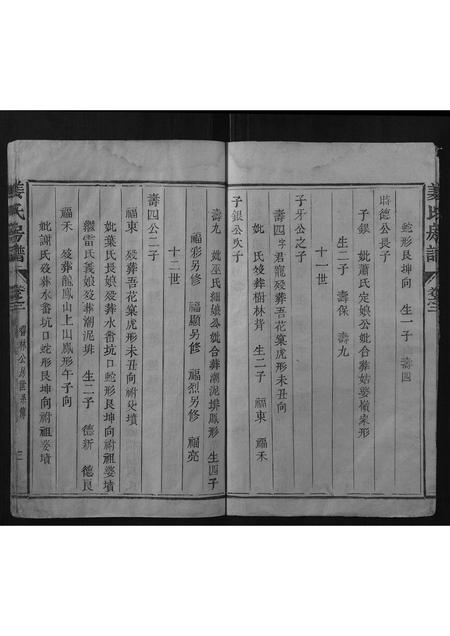 姜氏房譜
卷三
蛇形艮坤向 生一子 壽四
時德公長子
子銀 妣蕭氏定娘公妣合葬姑婆嶺家形
生二子 壽保 壽九
十一世
子牙公之子
壽四字君寵歿葬吾花窠虎形未丑向
妣 氏歿葬樹林背 生二子 福東 福禾
子銀公次子
壽九 妣巫氏細娘公妣合葬潮泥排鳳形 生四子
福彩另修 福顯另修 福烈另修 福亮
十二世
壽四公二子
福東 歿葬吾花窠虎形未丑向祔父墳
妣葉氏長娘歿葬水畨坑口蛇形艮坤向祔祖婆墳
繼雷氏義娘歿葬潮泥排 生二子 德新 德良
福禾 歿葬龍鳳山上山鳳形午子向
妣謝氏歿葬水畨坑口蛇形艮坤向祔祖婆墳
姜氏房譜
卷三
林公房世系傳
三